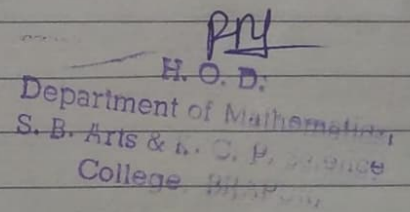 H. O. D.
Department of Mathematics,
S. B. Arts & K. C. P. Science
College